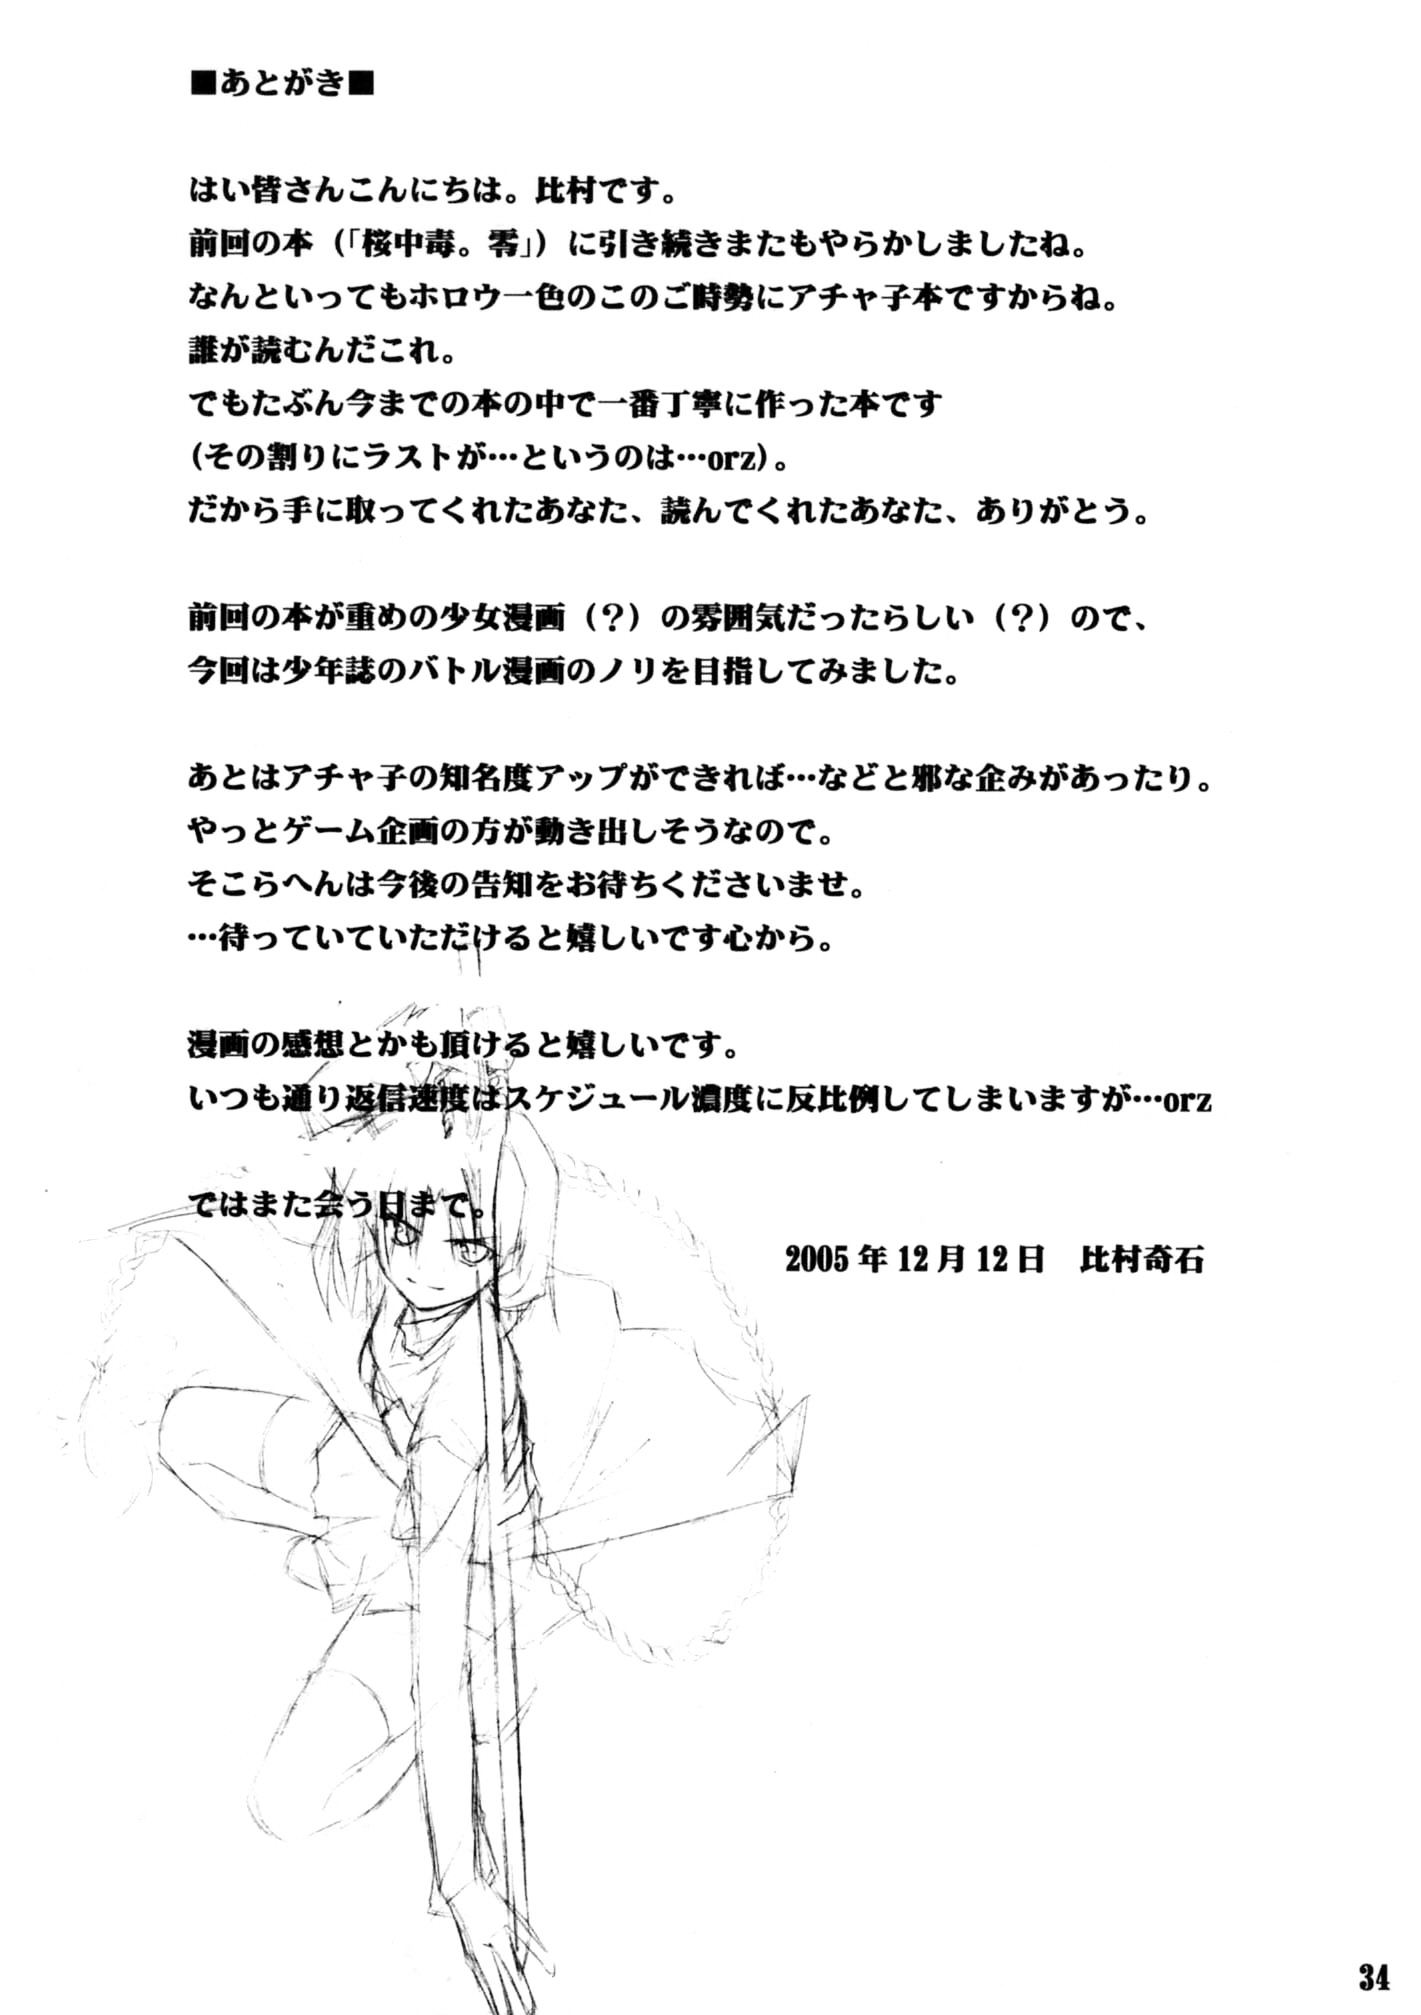 ■あとがき■
はい皆さんこんにちは。比村です。
前回の本（「桜中毒。零」）に引き続きまたもやらかしましたね。
なんといってもホロウ一色のこのご時勢にアチャ子本ですからね。
誰が読むんだこれ。
でもたぶん今までの本の中で一番丁寧に作った本です
（その割りにラストが…というのは…orz）。
だから手に取ってくれたあなた、読んでくれたあなた、ありがとう。
前回の本が重めの少女漫画（？）の雰囲気だったらしい（？）ので、
今回は少年誌のバトル漫画のノリを目指してみました。
あとはアチャ子の知名度アップができれば…などと邪な企みがあったり。
やっとゲーム企画の方が動き出しそうなので。
そこらへんは今後の告知をお待ちくださいませ。
…待っていていただけると嬉しいです心から。
漫画の感想とかも頂けると嬉しいです。
いつも通り返信速度はスケジュール濃度に反比例してしまいますが…orz
ではまた会う日まで。
2005年12月12日　比村奇石
34